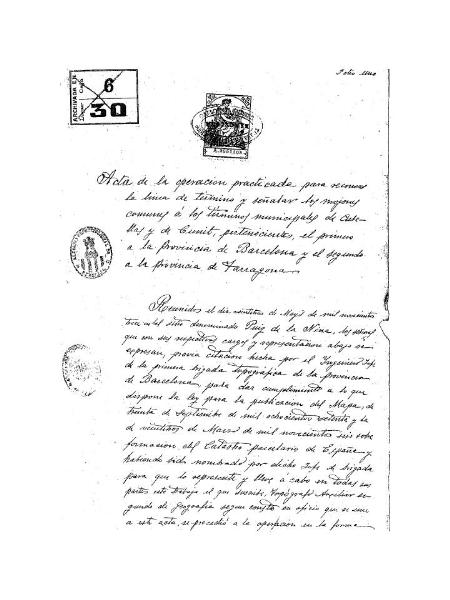 Folio uno
ARCHIVADA EN
6
30
Acta de la operacion practicada para reconocer
la linea de término y señalar los mojones
comunes á los términos municipales de Cubellas
y de Cunit, pertenecientes, el primero
a la Provincia de Barcelona y el segundo
a la provincia de Tarragona
Reunidos el dia de Mayo de mil novecientos
en el sitio denominado Puig de la Nina, los señores
que con sus respectivos cargos y representacion abajo se
expresan, previa citacion hecha por el Ingeniero Jefe
de la primera brigada topográfica de la provincia
de Barcelona, para dar cumplimiento a lo que
dispone la ley para la publicacion del Mapa, de
treinta de Septiembre de mil ochocientos setenta y la
de veintitres de Marzo de mil novecientos seis sobre
formacion del Catastro parcelario de España y
habiendo sido nombrado por dicho Jefe de brigada
para que lo represente y lleve á cabo en todas sus
partes este trabajo el que suscribe, Topógrafo Auxiliar segundo
de Geografia segun consta en oficio que se une
a este acta, se procedió a la operacion en la forma